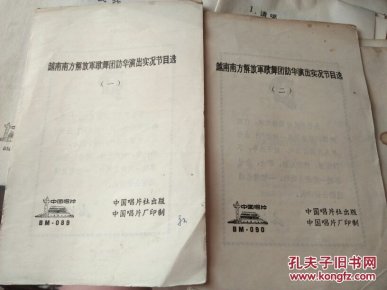 越南南方解放軍歌舞团訪华演出实况节目选
（一）
中国唱片
BM-089
中国唱片社出版
中国唱片厂印制
越南南方解放軍歌舞团訪华演出实况节目选
（二）
中国唱片
BM-090
中国唱片社出版
中国唱片厂印制
孔夫子旧书网